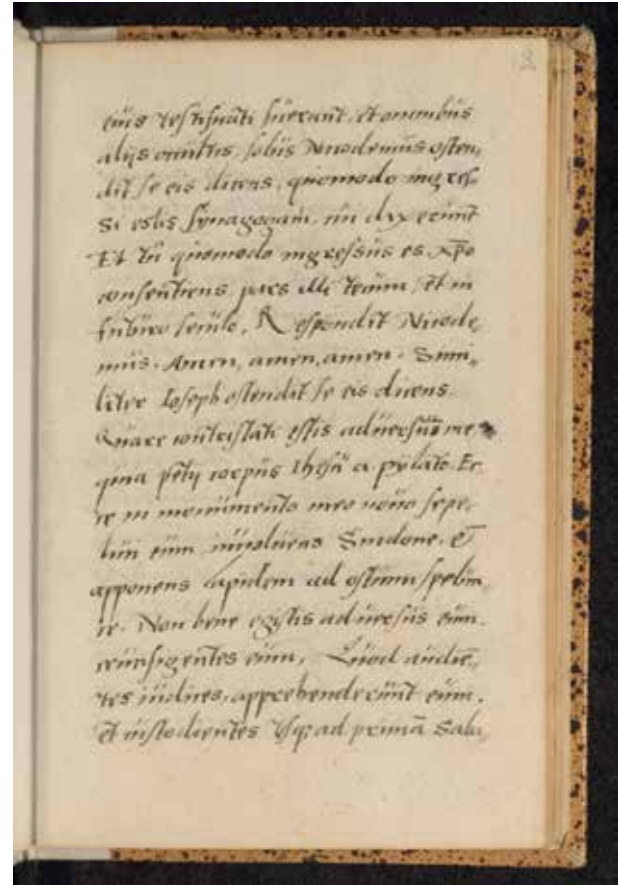 18
eius testificati fuerant, et omnibus
alijs occultis, solus Nicodemus osten„
dit se eis dicens, quomodo ingres„
si estis synagogam. cui dixerunt
Et tu quomodo ingressus es. xp̄o
consentiens pars illi tecum, et in
futuro seculo, Respondit Nicode„
mus. Amen, amen, amen. Simi„
liter Ioseph ostendit se eis dicens.
Quare contristati estis aduersum me
quia petij corpus Ihesu a pylato. Ec
ce in monumento meo nouo sepe„
liui eum inuoluens Sindone. et
apponens lapidem ad ostium spelun„
ce. Non bene egistis aduersus eum.
crucifigentes eum. Quod audien„
tes iudices, apprehenderunt eum.
et custodientes usq; ad primā Saba„